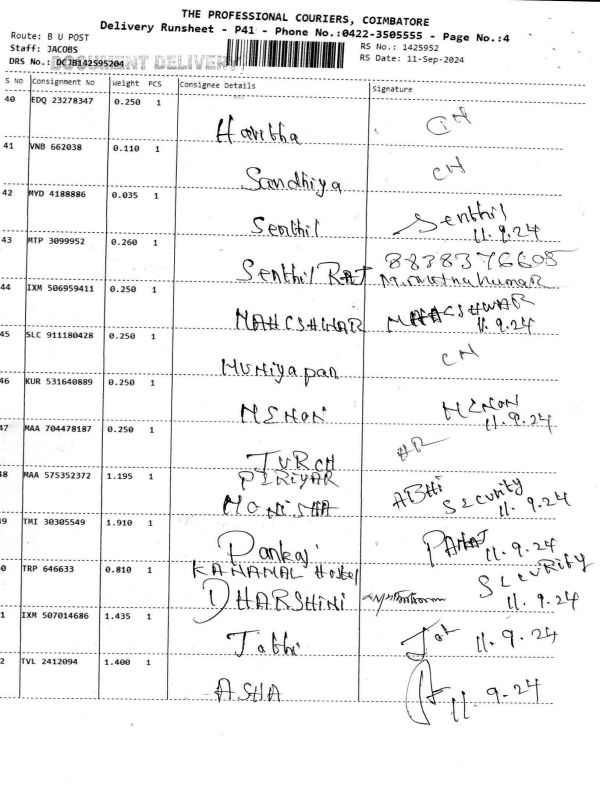 THE PROFESSIONAL COURIERS, COIMBATORE
Delivery Runsheet - P41 - Phone No.:0422-3505555 - Page No.:4
Route: B U POST
Staff: JACOBS
RS No.: 1425952
DRS No.: DCJB142595204
DOCUMENT DELIVERY
RS Date: 11-Sep-2024
S No Consignment No Weight PCS Consignee Details Signature
40 EDQ 23278347 0.250 1
Haritha CH
41 VNB 662038 0.110 1
Sandhiya CH
42 MYD 4188886 0.035 1
Senthil Senthil
11.9.24
43 MTP 3099952 0.260 1
8838376605
Senthil RAJ M.muthukumaR
44 IXM 506959411 0.250 1
MAHCSHWAR MAHACSHWAR
11.9.24
45 SLC 911180428 0.250 1
MUNiyapan CH
46 KUR 531640889 0.250 1
MENON MENON
11.9.24
47 MAA 704478187 0.250 1
PIRIYAR
48 MAA 575352372 1.195 1
MONiSHA ABHi Security
11.9.24
49 TMI 30305549 1.910 1
Pankaj 11.9.24
KANAMAL Hostel
50 TRP 646633 0.810 1
DHARSHiNi Security
11.9.24
51 IXM 507014686 1.435 1
11.9.24
52 TVL 2412094 1.400 1
ASHA 11.9.24